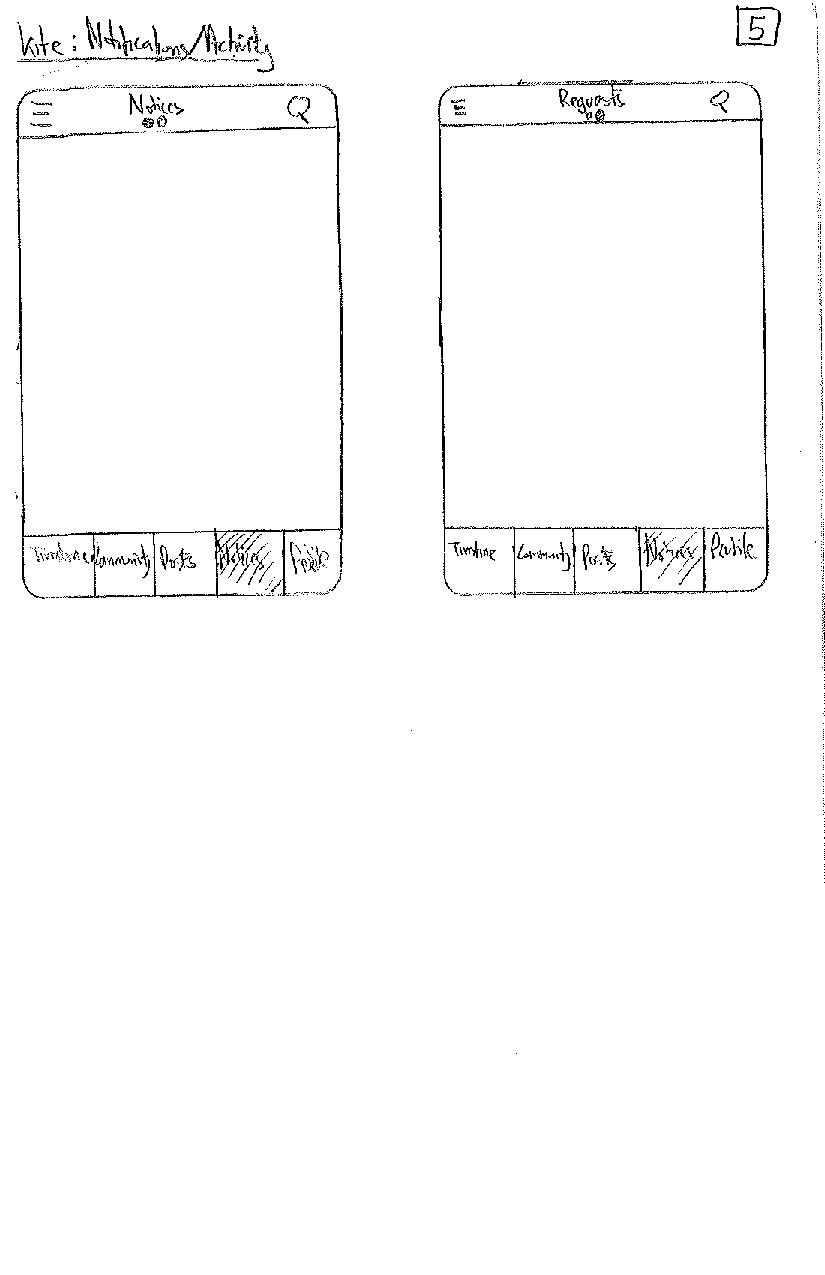 Kite: Notifications/Activity
5
Notices
Timeline Community Posts Notices Profile
Requests
Timeline Community Posts Notices Profile